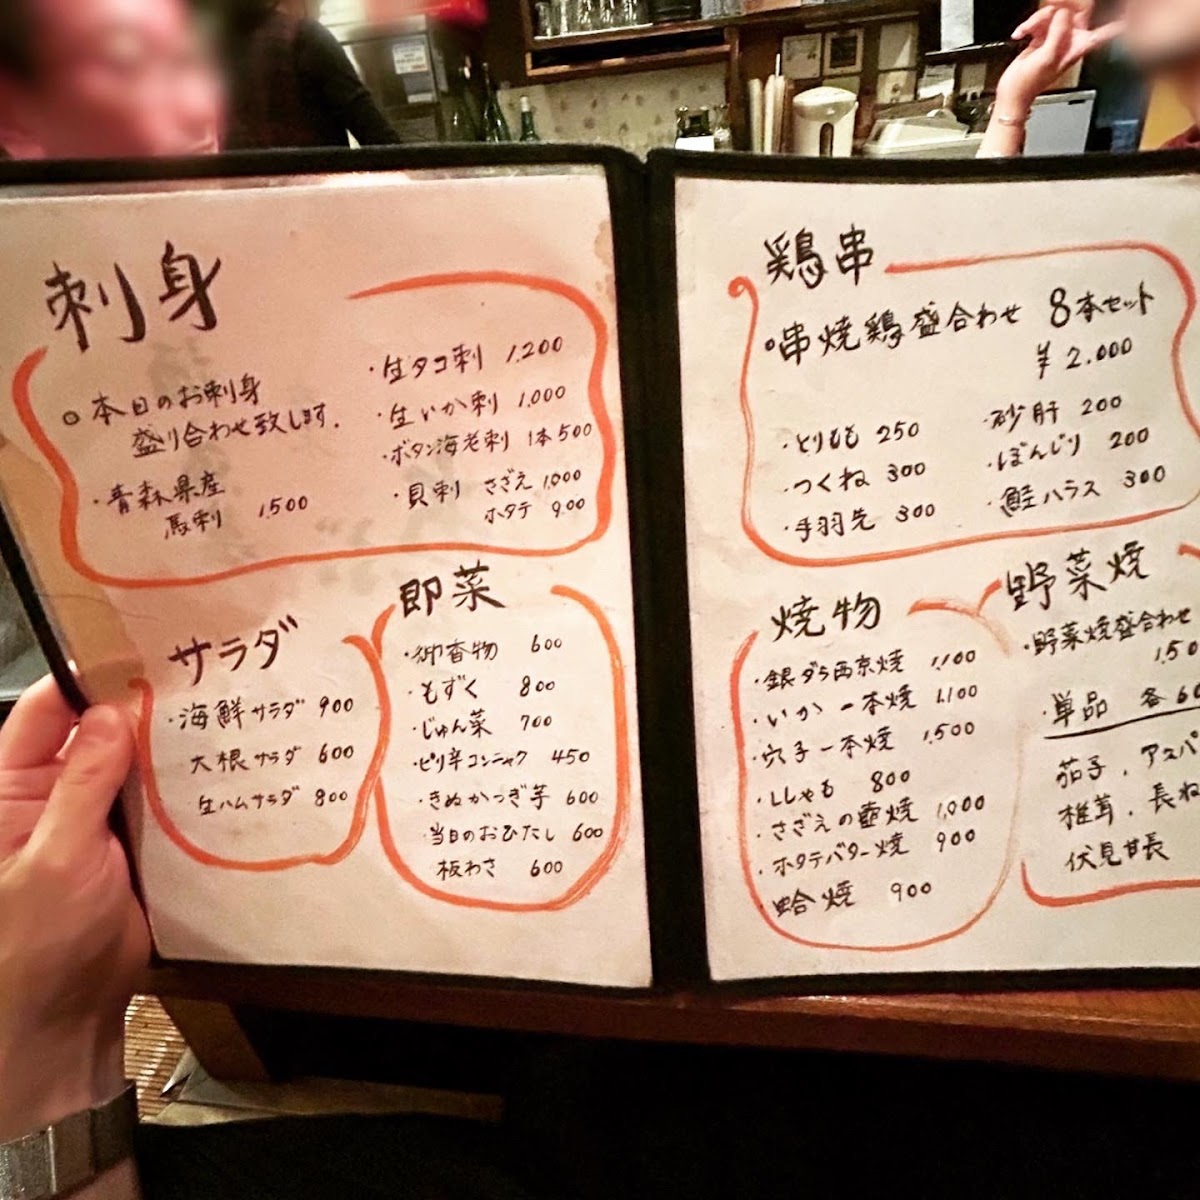 刺身
◎本日のお刺身
盛り合わせ致します.
・青森県産
馬刺 1.500
・生タコ刺 1.200
・生いか刺 1.000
・ボタン海老刺 1本500
・貝刺 さざえ 1.000
ホタテ 900
サラダ
・海鮮サラダ 900
大根サラダ 600
・生ハムサラダ 800
即菜
・御香物 600
・もずく 800
・じゅん菜 700
・ピリ辛コンニャク 450
・きぬかつぎ芋 600
・当日のおひたし 600
板わさ 600
鶏串
◎串焼鶏盛合わせ 8本セット
¥2.000
・とりもも 250
・つくね 300
・手羽先 300
・砂肝 200
・ぼんじり 200
・鮭ハラス 300
焼物
・銀ダラ西京焼 1.100
・いか一本焼 1.100
・穴子一本焼 1.500
・ししゃも 800
・さざえの壷焼 1.000
・ホタテバター焼 900
・蛤焼 900
野菜焼
・野菜焼盛合わせ
1.50
・単品 各60
茄子.アスパ
椎茸.長ね
伏見甘長